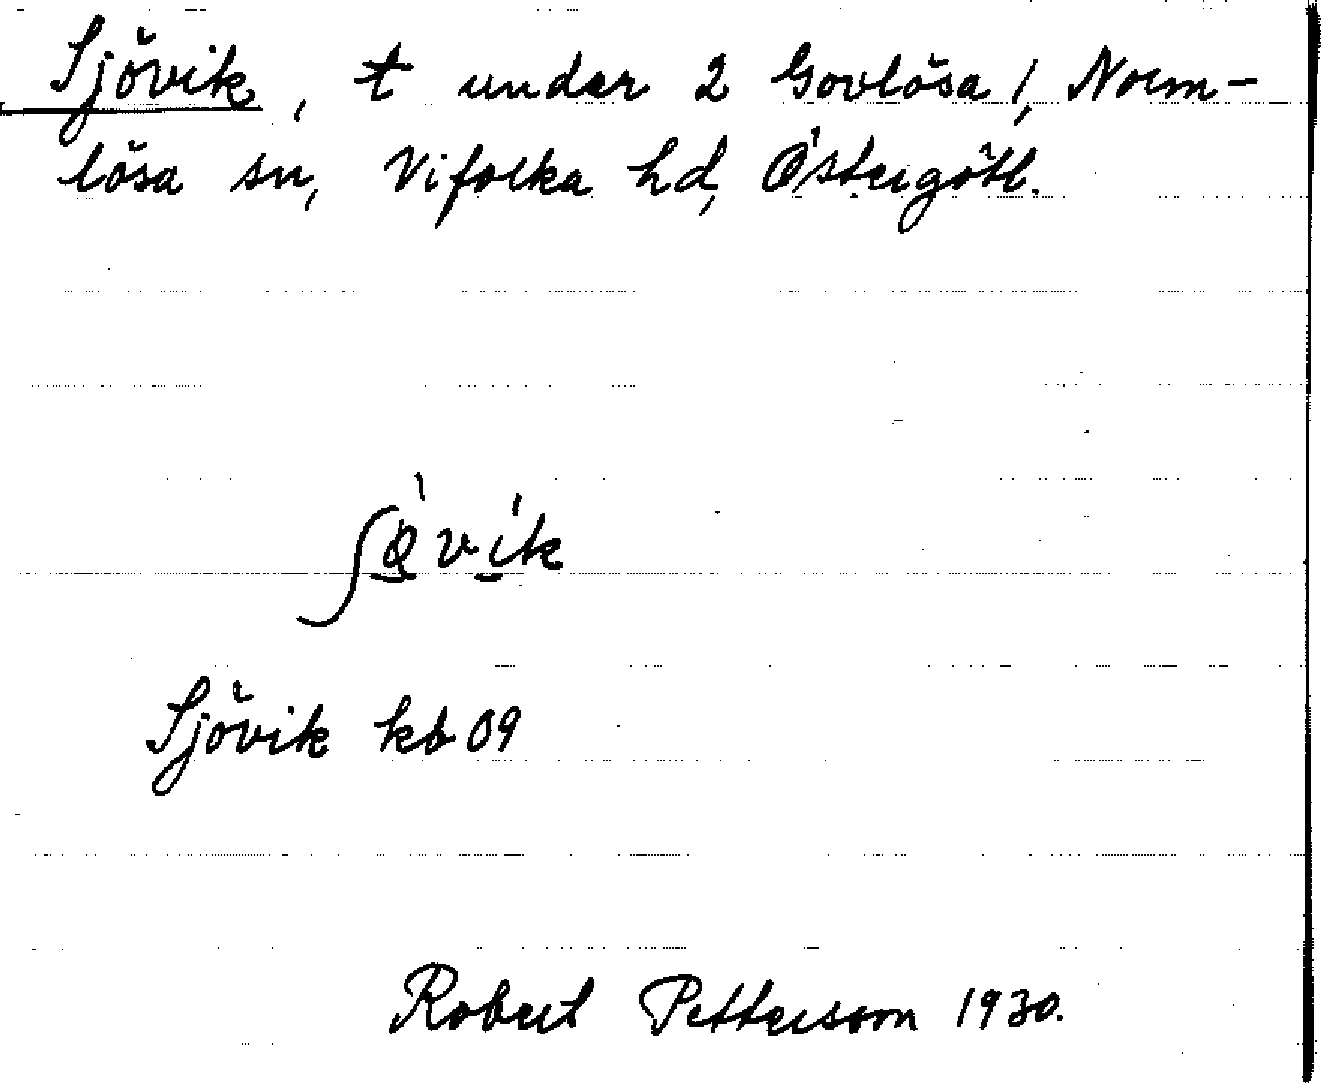 Sjövik, t under 2 Govlösa 1, Norm-
lösa sn, Vifolka hd, Östergötl.
Sjövik kb 09
Robert Petterson 1930.